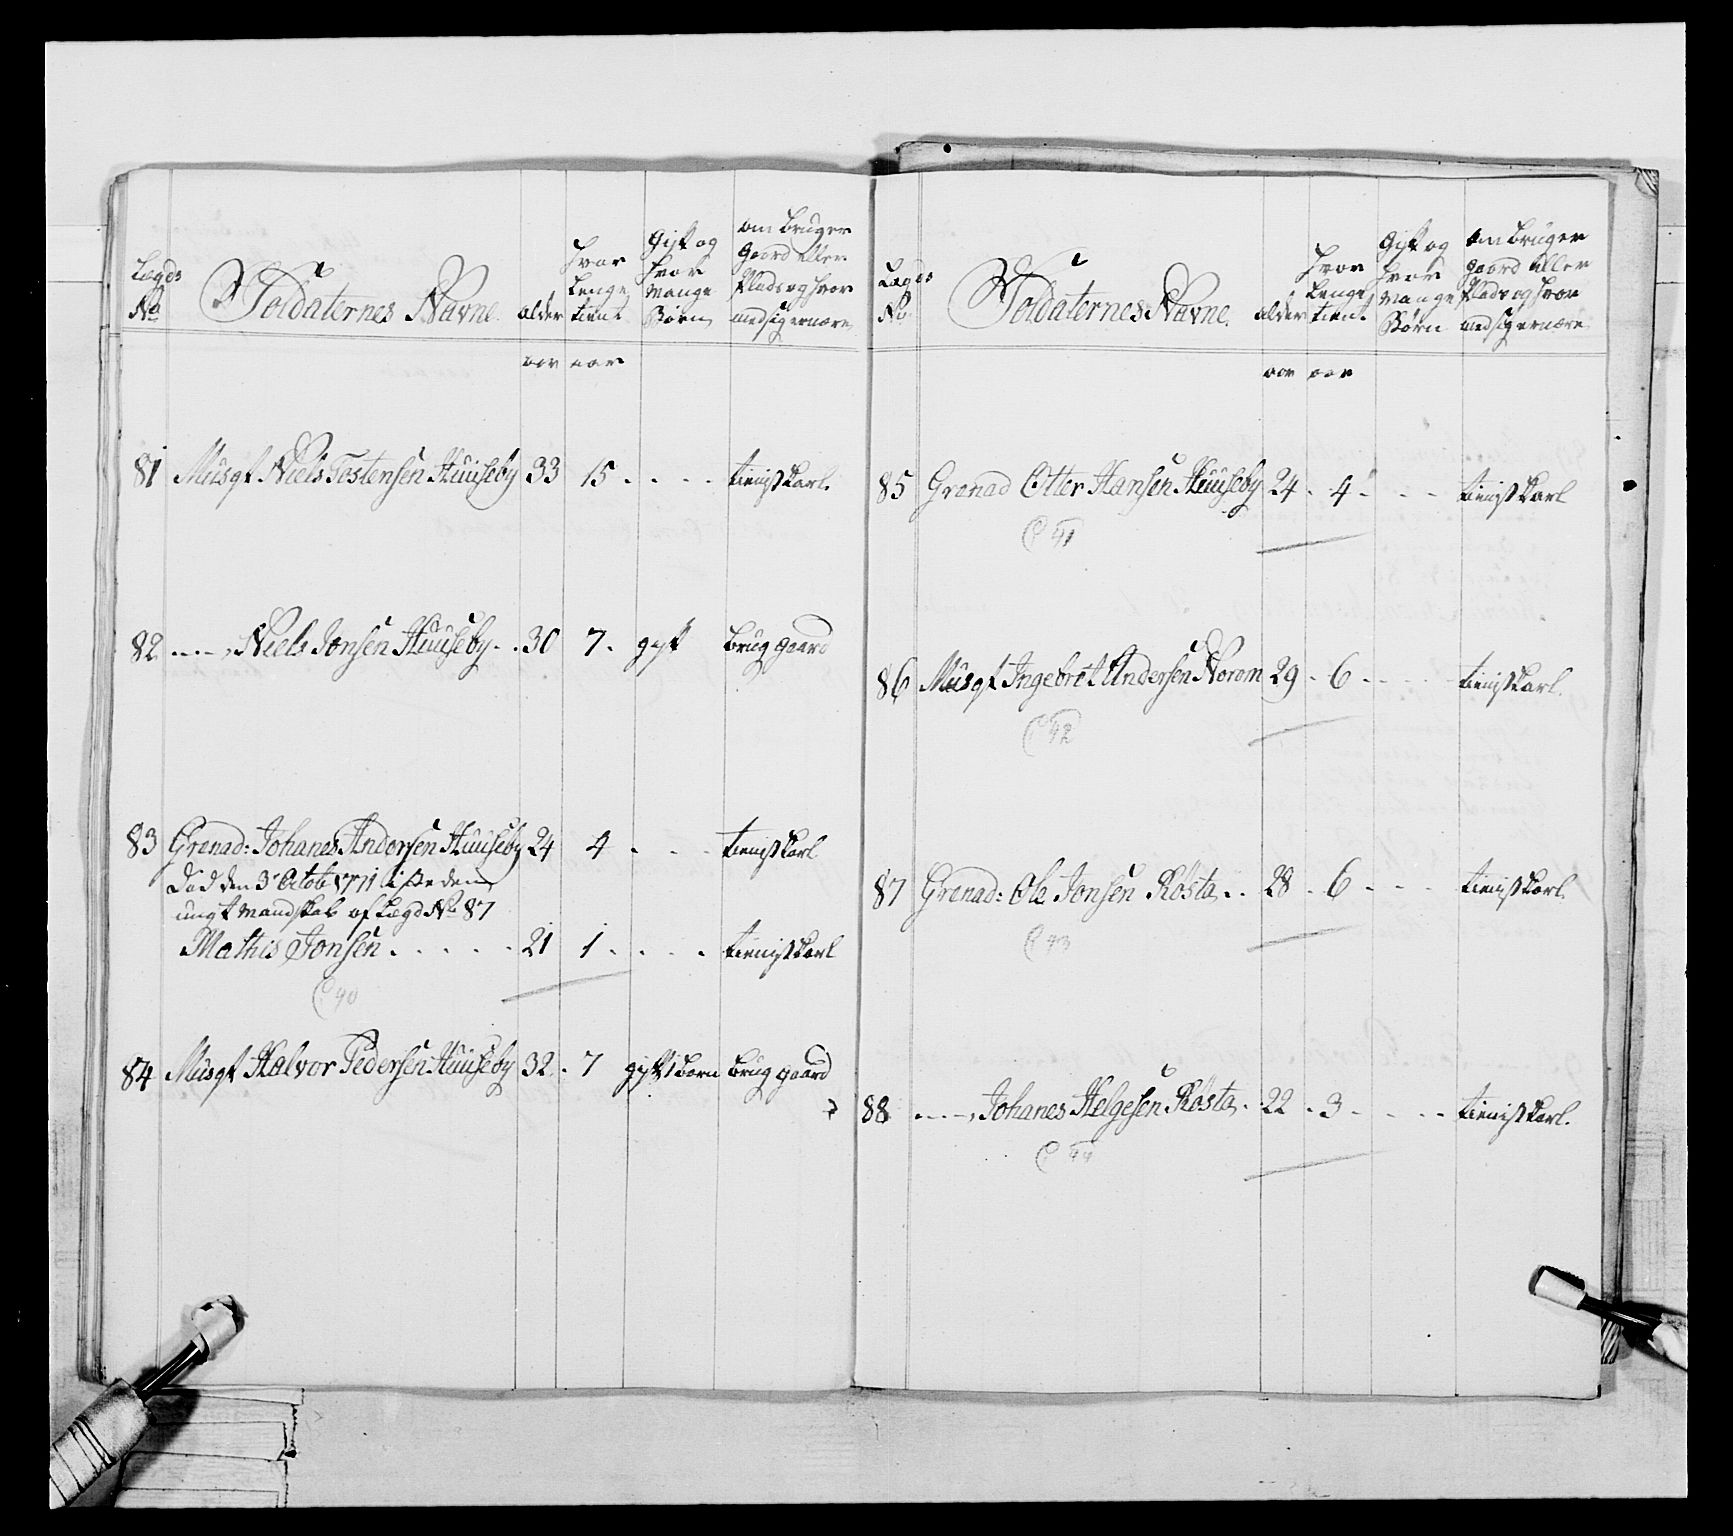 Lægds No
Soldaternes Navne.
alder
hvor Lenge tient
Gift og hvor Mange Børn
om bruger Gaard eller Plads og hvor med sig ernære
aar aar
81 Musqt Niels Tostensen Huuseby 33 15 - - - - tienistkarl.
82 - - - , Niels Jonsen Huuseby - . 30 7 . gift brug gaard
83 Grenad: Johanes Andersen Huuseby 24 4 - - - tienistkarl
død den 3 Octob 1771 i steden
ungt Mandskab af Lægd No 87
Mathis Jonsen . . . . . 21 1 - . . . tienistkarl
C 40
84 Musqt Halvor Pedersen Huuseby 32 . 7 gift 1 barn brug gaard
Lagds No
Soldaternes Navne.
alder
hvor Lenge tient
Gift og hvor Mange Børn
om bruger gaard eller Plads og hvor med sig ernære
aar aar
85 Grenad Otter Hansen Huuseby 24 . 4 - - - - tienistkarl
C 41
86 Musqt Ingebret Andersen Norom 29 - 6 - - - - tienistkarl.
C 42
87 Grenad: Ole Jonsen Rosta . . 28 . 6 - - - tienistkarl.
C 43
88 - - - - , Johanes Helgesen Rosta . 22 . 3 - - - - tienistkarl.
C 44